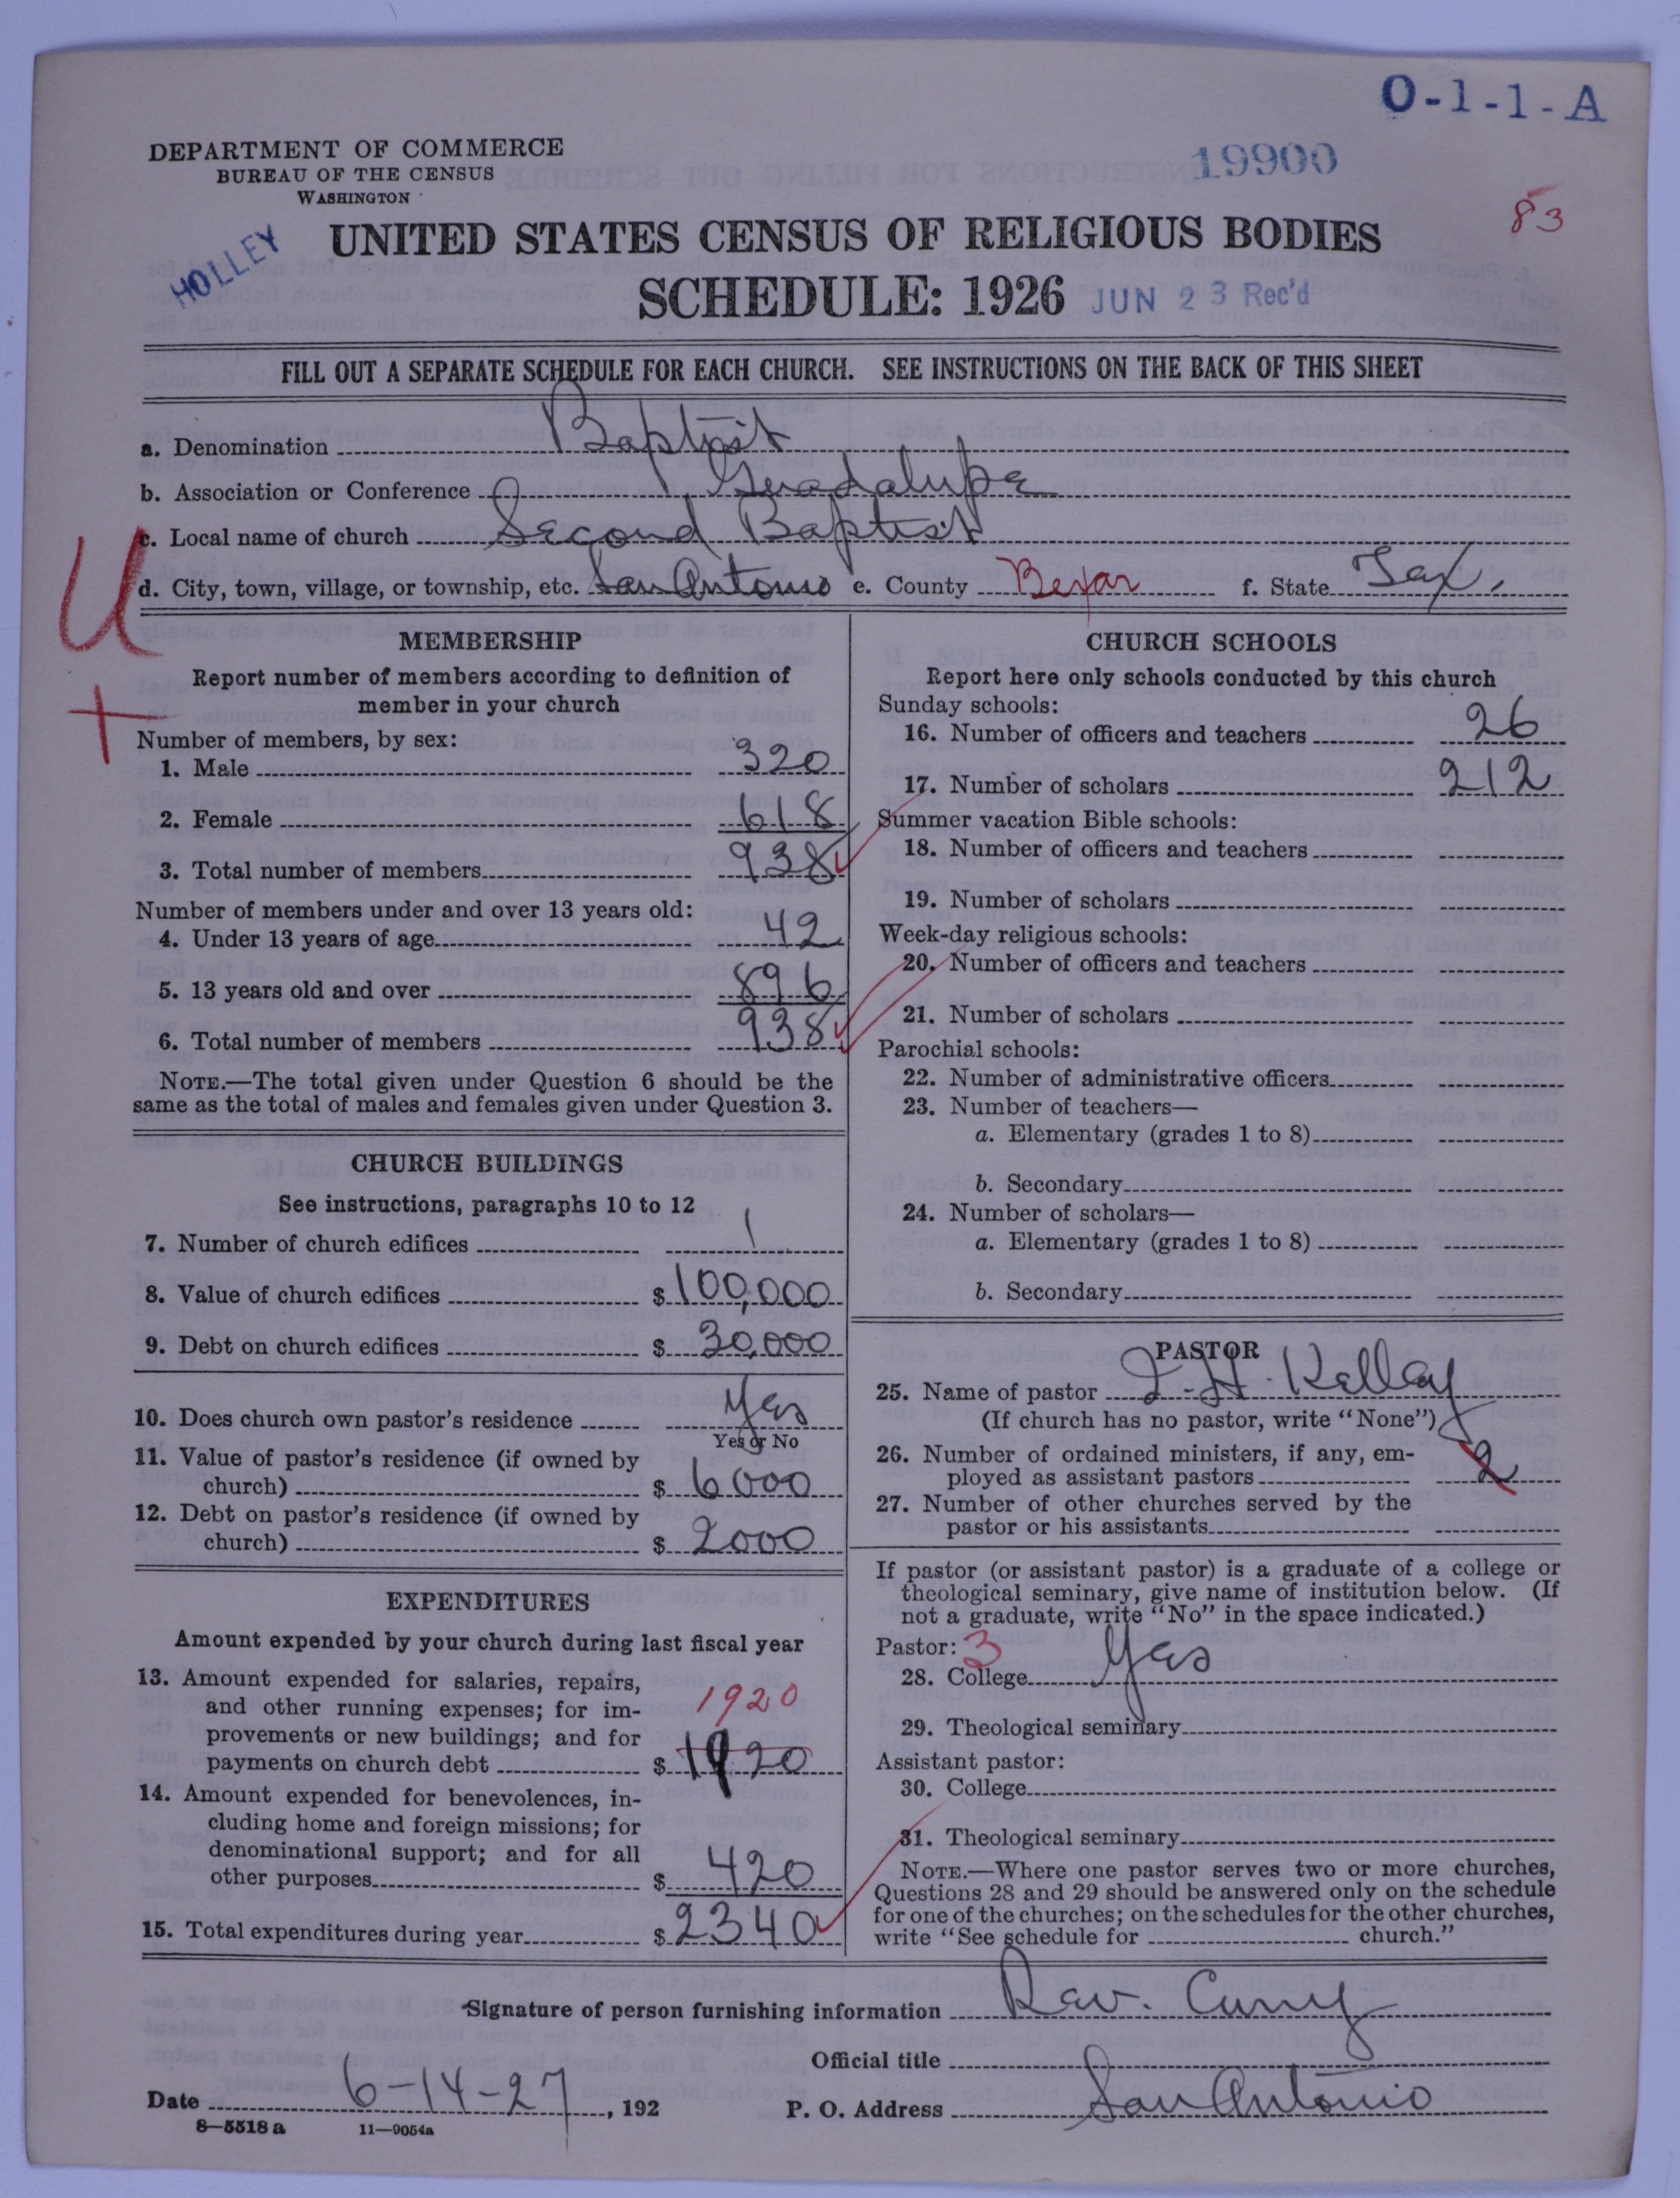 O-1-1-A
DEPARTMENT OF COMMERCE
BUREAU OF THE CENSUS
WASHINGTON
19900
83
HOLLEY
UNITED STATES CENSUS OF RELIGIOUS BODIES
SCHEDULE: 1926 JUN 23 Rec'd
FILL OUT A SEPARATE SCHEDULE FOR EACH CHURCH. SEE INSTRUCTIONS ON THE BACK OF THIS SHEET
a. Denomination Baptist
b. Association or Conference Guadalupe
c. Local name of church Second Baptist
d. City, town, village, or township, etc. San Antonio e. County Bexar f. State Tex.
U
+
MEMBERSHIP
Report number of members according to definition of
member in your church
Number of members, by sex:
1. Male 320
2. Female 618
3. Total number of members 938
Number of members under and over 13 years old:
4. Under 13 years of age 42
5. 13 years old and over 896
6. Total number of members 938
NOTE.—The total given under Question 6 should be the
same as the total of males and females given under Question 3.
CHURCH BUILDINGS
See instructions, paragraphs 10 to 12
7. Number of church edifices 1
8. Value of church edifices $ 100,000
9. Debt on church edifices $ 30,000
10. Does church own pastor's residence Yes
Yes or No
11. Value of pastor's residence (if owned by
church) $ 6000
12. Debt on pastor's residence (if owned by
church) $ 2000
EXPENDITURES
Amount expended by your church during last fiscal year
13. Amount expended for salaries, repairs,
and other running expenses; for im-
1920
provements or new buildings; and for
payments on church debt $ 1920
14. Amount expended for benevolences, in-
cluding home and foreign missions; for
denominational support; and for all
other purposes $ 420
15. Total expenditures during year $ 2340
CHURCH SCHOOLS
Report here only schools conducted by this church
Sunday schools:
16. Number of officers and teachers 26
17. Number of scholars 212
Summer vacation Bible schools:
18. Number of officers and teachers
19. Number of scholars
Week-day religious schools:
20. Number of officers and teachers
21. Number of scholars
Parochial schools:
22. Number of administrative officers
23. Number of teachers—
a. Elementary (grades 1 to 8)
b. Secondary
24. Number of scholars—
a. Elementary (grades 1 to 8)
b. Secondary
PASTOR
25. Name of pastor J. H. Kelley
(If church has no pastor, write "None")
26. Number of ordained ministers, if any, em-
ployed as assistant pastors 2
27. Number of other churches served by the
pastor or his assistants
If pastor (or assistant pastor) is a graduate of a college or
theological seminary, give name of institution below. (If
not a graduate, write "No" in the space indicated.)
Pastor: 3
28. College Yes
29. Theological seminary
Assistant pastor:
30. College
31. Theological seminary
NOTE.—Where one pastor serves two or more churches,
Questions 28 and 29 should be answered only on the schedule
for one of the churches; on the schedules for the other churches,
write "See schedule for church."
Signature of person furnishing information Rev. Curry
Official title
Date 6-14-27, 192 P. O. Address San Antonio
8—5518 a 11—9054a